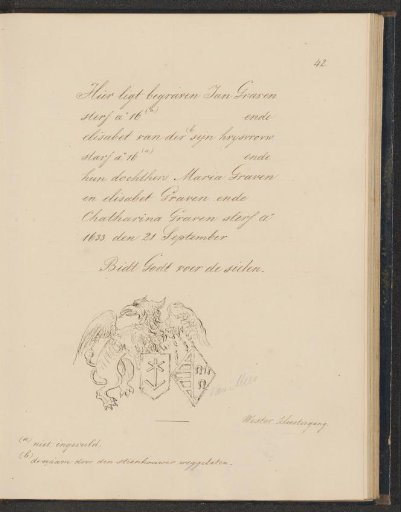 42
Hier legt begraven Jan Graven
sterf a° 16 (a) ende
elisabet van der (b) syn huysvrow
starf a° 16 (a) ende
hun dochthers Marea Graven
en elisabet Graven ende
Chatharina Graven sterf a°
1633 den 21 September
Bidt Godt voer de sielen.
Wester
(a) niet ingevuld.
(b) de naam door den steenhouwer weggelaten.